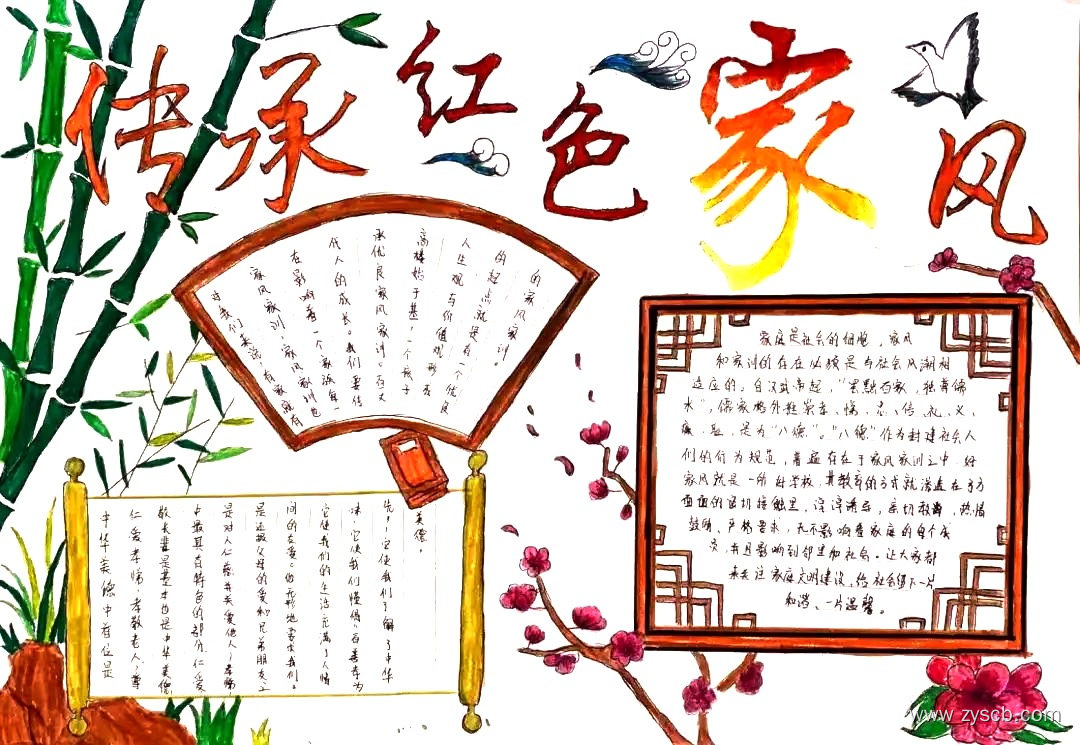 传承红色家风
对我们来说,有家庭有
家风家训,家风家训也
在影响着一个家族每一
代人的成长。我们要传
承优良家风家训。百丈
高楼始于基,一个孩子
人生观与价值观形成
的起点就是有一个优良
的家风家训。
中华美德中首位是
仁爱孝悌,孝敬老人,尊
敬长辈是基本也是中华美德
占最具有特色的部分。仁爱
是对人仁慈并关爱他人;孝悌
是还报父母的爱和兄弟朋友之
间的友爱。也无形地要求我们。
它使我们的生活充满了人情
味,它使我们懂得"百善孝为
先",它使我们了解了中华
美德。
家庭是社会的细胞,家风
和家训的存在必须是与社会风潮相
适应的。自汉武帝起,"罢黜百家,独尊儒
术",儒家格外推崇孝、悌、忠、信、礼、义、
廉、耻,是为"八德"。"八德"作为封建社会人
们的行为规范,普遍存在于家风家训之中。好
家风就是一所好学校,其教育的方式就渗透在方方
面面的密切接触里,深深诱导,亲切教诲,热情
鼓励、严格要求,无不影响着家庭的每个成
员,并且影响到邻里和社会。让大家都
来关注家庭文明建设,给社会留下一片
和谐、一片温馨。
www.zyscb.com